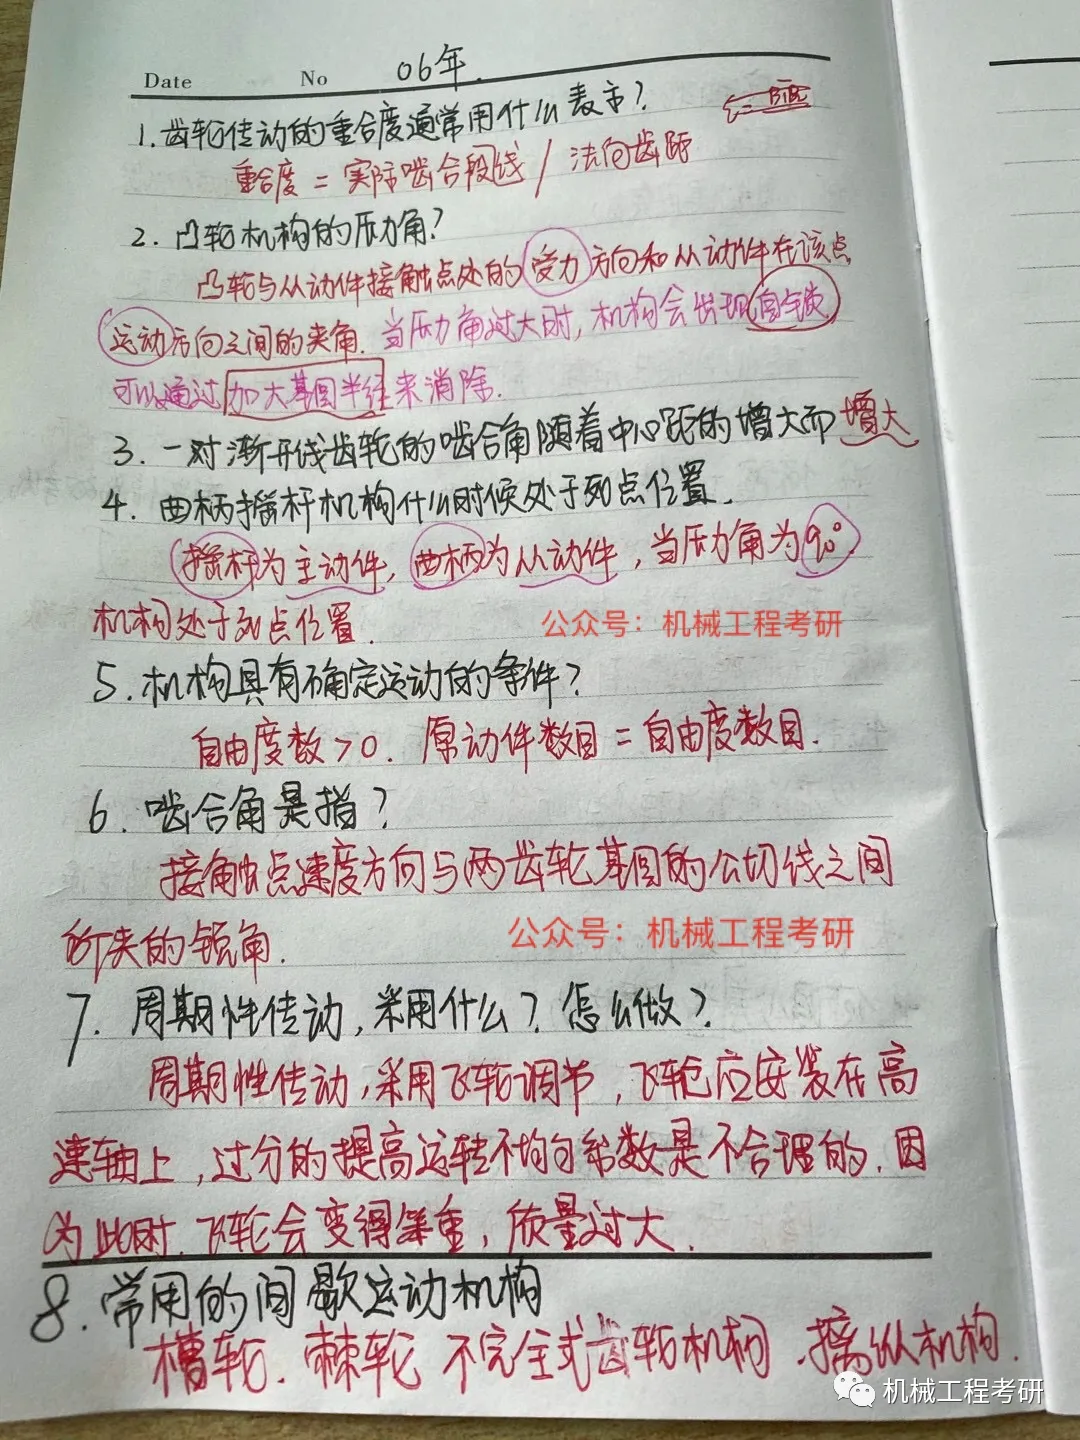 Date No 06年.
1. 齿轮传动的重合度通常用什么表示?
重合度 = 实际啮合段线 / 法向齿距
2. 凸轮机构的压力角?
凸轮与从动件接触点处的受力方向和从动件在该点
运动方向之间的夹角. 当压力角过大时, 机构会出现自锁
可以通过加大基圆半径来消除.
3. 一对渐开线齿轮的啮合角随着中心距的增大而增大
4. 曲柄摇杆机构什么时候处于死点位置.
摇杆为主动件, 曲柄为从动件, 当压力角为90°.
机构处于死点位置.
公众号:机械工程考研
5. 机构具有确定运动的条件?
自由度数>0. 原动件数目=自由度数目.
6. 啮合角是指?
接触点速度方向与两齿轮基圆的公切线之间
所夹的锐角.
公众号:机械工程考研
7. 周期性传动, 采用什么? 怎么做?
周期性传动, 采用飞轮调节, 飞轮应安装在高
速轴上, 过分的提高运转不均匀系数是不合理的. 因
为此时. 飞轮会变得笨重, 质量过大.
8. 常用的间歇运动机构
槽轮. 棘轮 不完全式齿轮机构. 擒纵机构.
机械工程考研